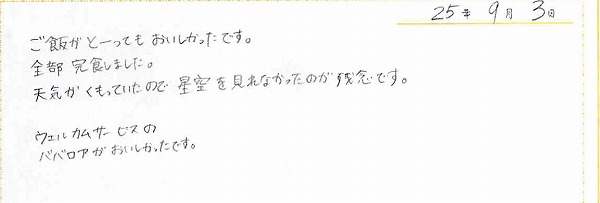 25年 9月 3日
ご飯がとーってもおいしかったです。
全部完食しました。
天気がくもっていたので星空を見れなかったのが残念です。
ウェルカムサービスの
ババロアがおいしかったです。